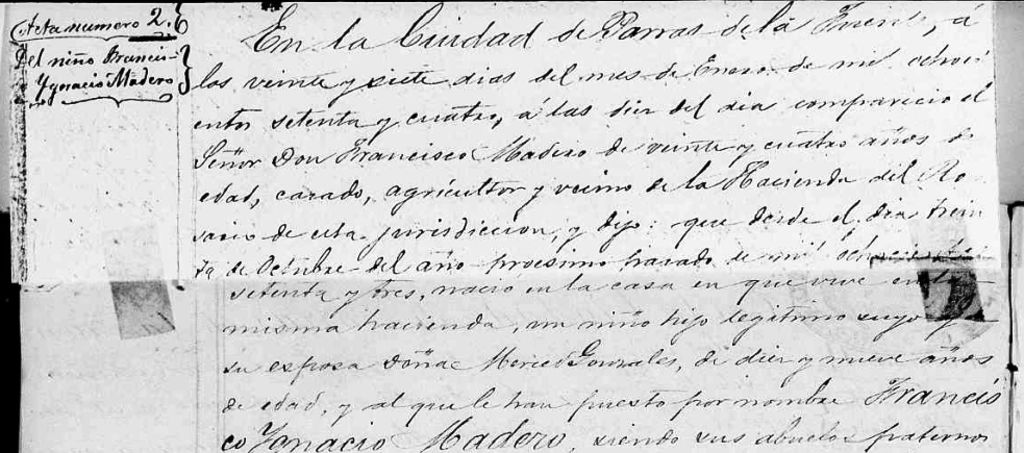 Acta numero 2.
Del niño Francis-
Ygnacio Madero
En la Ciudad de Parras de la Fuente, á
los veinte y siete dias del mes de Enero de mil ochoci
entos setenta y cuatro, á las diez del dia comparecio el
Señor Don Francisco Madero de veinte y cuatro años de
edad, casado, agricultor y vecino de la Hacienda del Ro
sario de esta jurisdiccion, y dijo: que desde el dia trein
ta de Octubre del año procsimo pasado de mil ochocientos
setenta y tres, nacio en la casa en que vive en la
misma hacienda, un niño hijo legitimo suyo y
su esposa Doña Merced Gonzales, de diez y nueve años
de edad, y al que le han puesto por nombre Francis
co Ygnacio Madero, siendo sus abuelos paternos